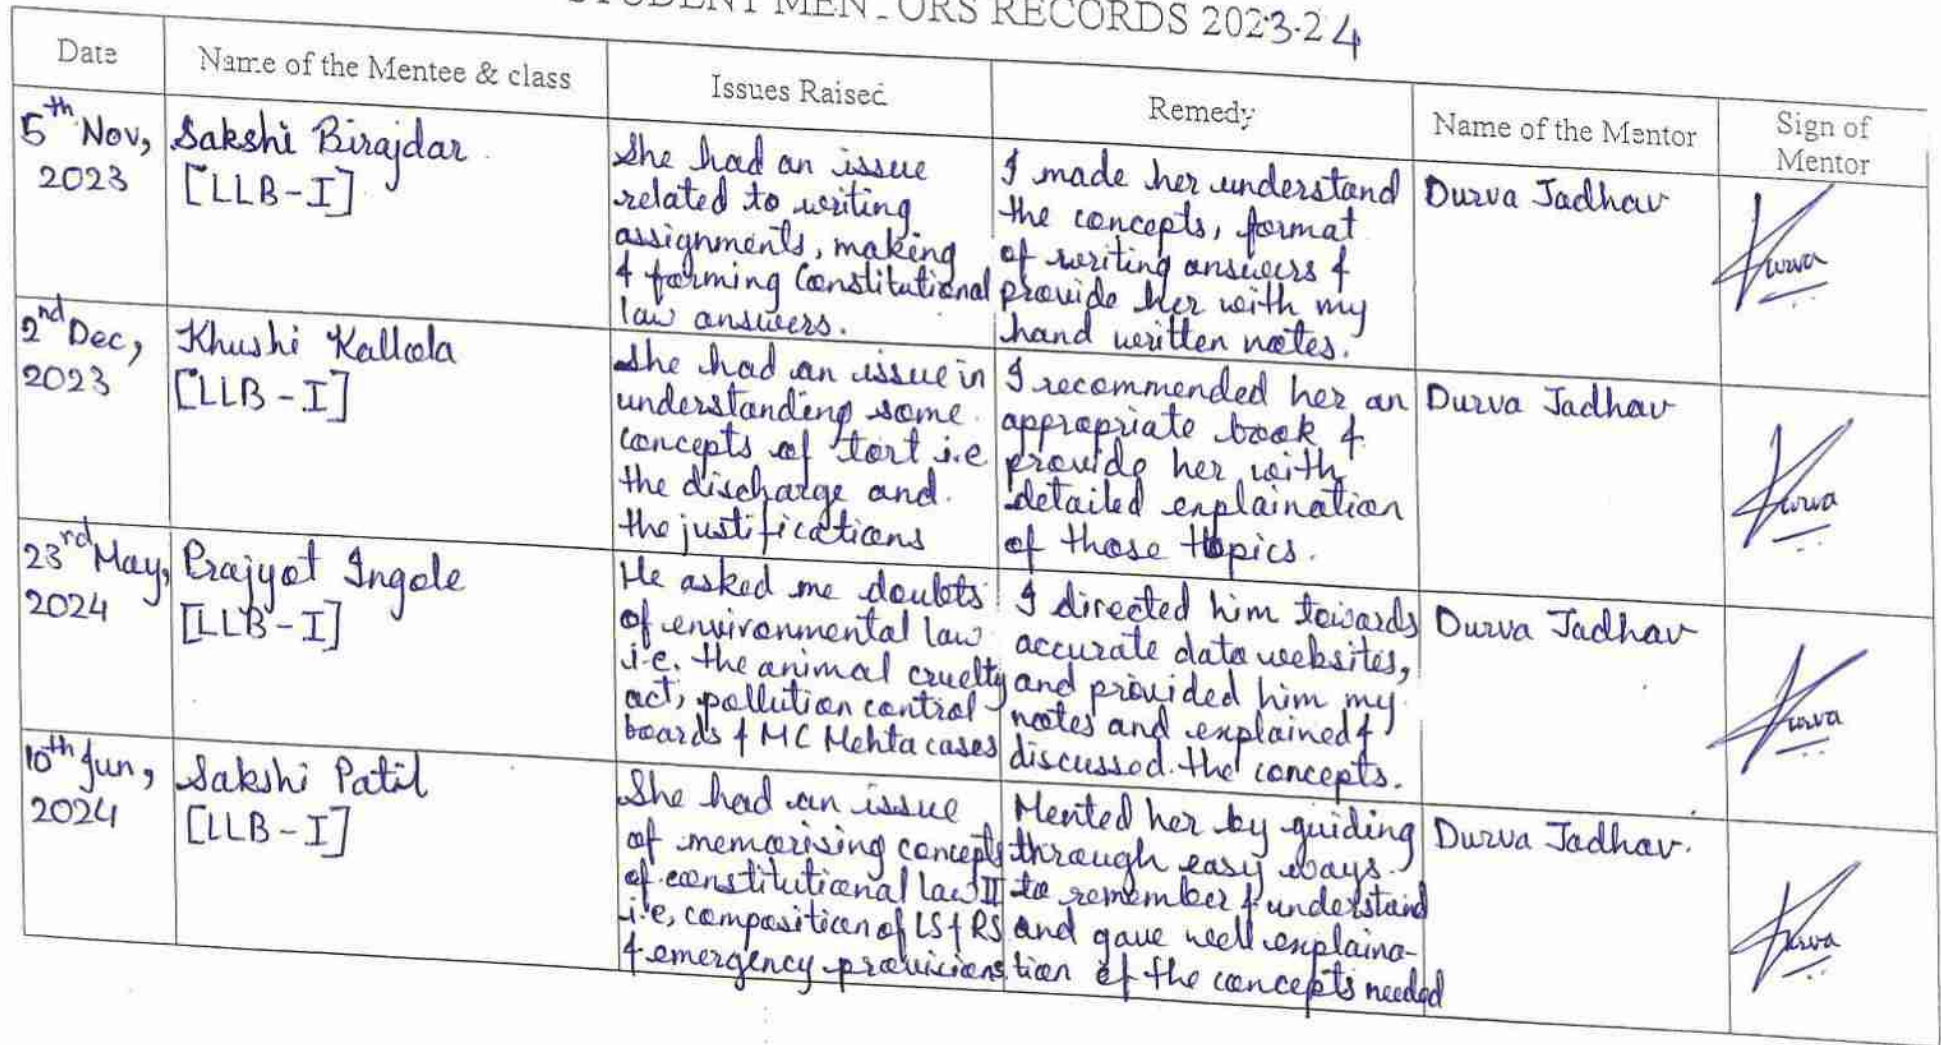 STUDENT MENTORS RECORDS 2023-24
Date
Name of the Mentee & class
Issues Raised
Remedy
Name of the Mentor
Sign of
Mentor
5th Nov,
2023
Sakshi Birajdar
[LLB-I]
She had an issue
related to writing
assignments, making
& forming Constitutional
law answers.
I made her understand
the concepts, format
of writing answers &
provide her with my
hand written notes.
Durva Jadhav
Durva
2nd Dec,
2023
Khushi Kallola
[LLB-I]
She had an issue in
understanding some
concepts of tort i.e
the discharge and
the justifications
I recommended her an
appropriate book &
provide her with
detailed explaination
of those topics.
Durva Jadhav
Durva
23rd May,
2024
Prajyot Ingole
[LLB-I]
He asked me doubts
of environmental law
i.e. the animal cruelty
act, pollution control
boards & MC Mehta cases
I directed him towards
accurate data websites,
and provided him my
notes and explained &
discussed the concepts.
Durva Jadhav
Durva
10th Jun,
2024
Sakshi Patil
[LLB-I]
She had an issue
of memorising concepts
of constitutional law II
i.e, composition of LS & RS
& emergency provicions
Mented her by guiding
through easy ways
to remember & understand
and gave well explaina-
tion of the concepts needed
Durva Jadhav.
Durva